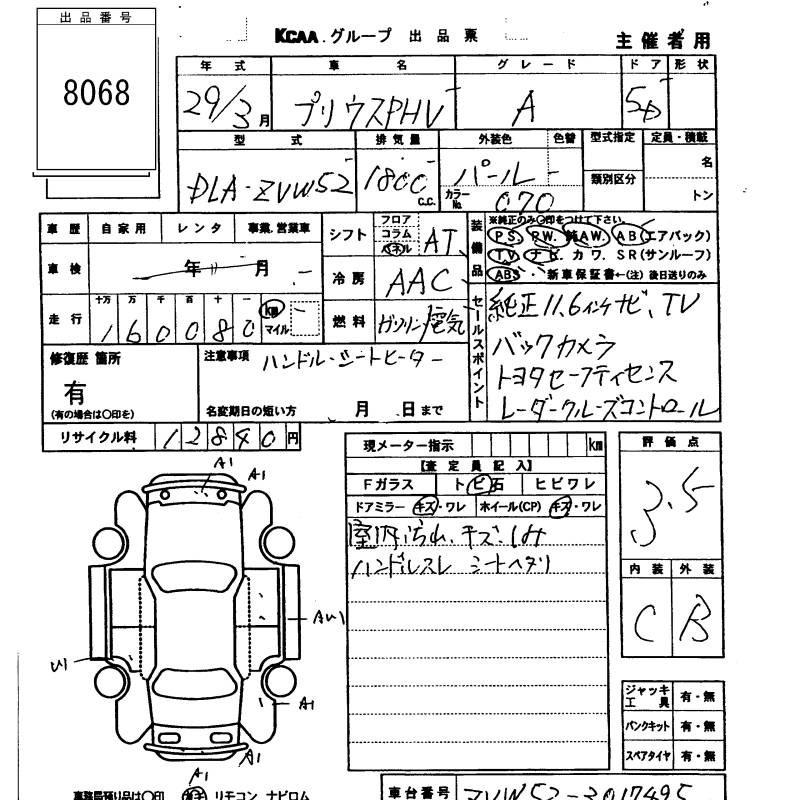 出品番号
8068
KCAA.グループ 出品票
主催者用
年式 車名 グレード ドア 形状
29/3月 プリウスPHV A 5D
型式 排気量 外装色 色替 型式指定 定員・積載
DLA-ZVW52 1800 C.C. パール 類別区分 名
カラーNo. 070 トン
車歴 自家用 レンタ 事業、営業車
シフト フロア コラム パネル AT
装備品 ※純正のみ○印をつけて下さい。
P.S. P.W. 純AW. AB(エアバック)
TV ナビ. カワ. SR(サンルーフ)
ABS 新車保証書←(注)後日送りのみ
車検 年 月
冷房 AAC
走行 十万 万 千 百 十 一
160080 km マイル
燃料 ガソリン電気
セールスポイント
純正11.6インチナビ、TV
バックカメラ
トヨタセーフティセンス
レーダークルーズコントロール
修復歴 箇所
有
(有の場合は○印を)
注意事項 ハンドル・シートヒーター
名変期日の短い方 月 日まで
リサイクル料 12840円
現メーター指示 km
【査定員記入】
Fガラス トビ石 ヒビワレ
ドアミラー キズ・ワレ ホイール(CP) キズ・ワレ
室内汚れ、キズ、しみ
ハンドルスレ シートヘタリ
評価点
3.5
内装 外装
C B
A1
A1
AU1
U1
A1
A1
A1
ジャッキ工具 有・無
パンクキット 有・無
スペアタイヤ 有・無
事務局預り品は○印 リモコン ナビロム
車台番号 ZVW52-3017495